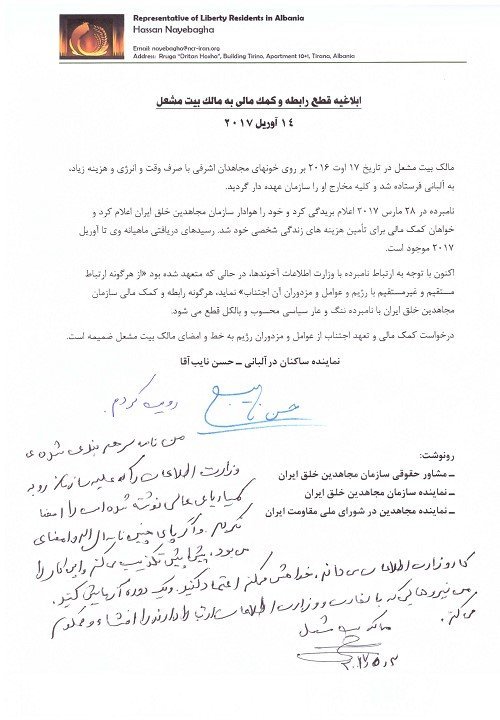 Representative of Liberty Residents in Albania
Hassan Nayebagha
Email: nayebagha@ncr-iran.org
Address: Rruga "Oritan Hoxha", Building Tirino, Apartment 10+1, Tirana, Albania
ابلاغیه قطع رابطه و کمک مالی به مالک بیت مشعل
۱۴ آوریل ۲۰۱۷
مالک بیت مشعل در تاریخ ۱۷ اوت ۲۰۱۶ بر روی خونهای مجاهدان اشرفی با صرف وقت و انرژی و هزینه زیاد،
به آلبانی فرستاده شد و کلیه مخارج او را سازمان عهده دار گردید.
نامبرده در ۲۸ مارس ۲۰۱۷ اعلام بریدگی کرد و خود را هوادار سازمان مجاهدین خلق ایران اعلام کرد و
خواهان کمک مالی برای تأمین هزینه های زندگی شخصی خود شد. رسیدهای دریافتی ماهیانه وی تا آوریل
۲۰۱۷ موجود است.
اکنون با توجه به ارتباط نامبرده با وزارت اطلاعات آخوندها، در حالی که متعهد شده بود «از هرگونه ارتباط
مستقیم و غیرمستقیم با رژیم و عوامل و مزدوران آن اجتناب» نماید، هرگونه رابطه و کمک مالی سازمان
مجاهدین خلق ایران با نامبرده ننگ و عار سیاسی محسوب و بالکل قطع می شود.
درخواست کمک مالی و تعهد اجتناب از عوامل و مزدوران رژیم به خط و امضای مالک بیت مشعل ضمیمه است.
نماینده ساکنان در آلبانی ـ حسن نایب آقا
رویت کردم.
من نامه سرهم بندی شده ی
وزارت اطلاعات را که علیه سازمان رو به
رونوشت:
ـ مشاور حقوقی سازمان مجاهدین خلق ایران
ـ نماینده سازمان مجاهدین خلق ایران
ـ نماینده مجاهدین در شورای ملی مقاومت ایران
کمیساریای عالی نوشته شده است را امضا
نکردم. و اگر پای چنین نامه ای اسم و امضای
می بود، پیشاپیش تکذیب می کنم و این کار را
کار وزارت اطلاعات می دانم، خواهش میکنم اعتماد کنید و یک دوره آزمایش کنید.
من نیروهایی که با سفارت و وزارت اطلاعات ارتباط دارند را افشاء و محکوم
می کنم.
مالک بیت مشعل